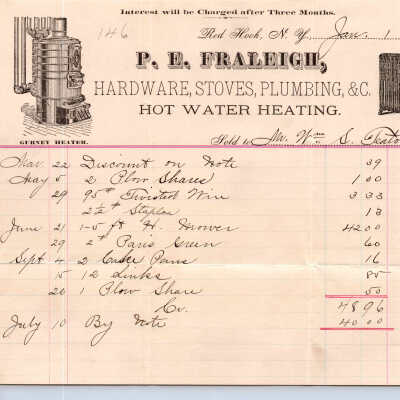 Interest will be Charged after Three Months.
146
Red Hook, N. Y., Jan. 1
P. E. FRALEIGH,
HARDWARE, STOVES, PLUMBING, &C.
HOT WATER HEATING.
GURNEY HEATER.
Sold to Mr. Wm S.
Mar. 22 Discount on Note 39
May 5 2 Plow Shares 1 00
29 95# Twisted Wire 3 33
2½# Staples 13
June 21 1-5 ft H. Mower 42 00
29 2# Paris Green 60
Sept 4 2 Cake Pans 16
15 12 Links 85
20 1 Plow Share 50
48 96
Cr.
July 10 By Note 40 00